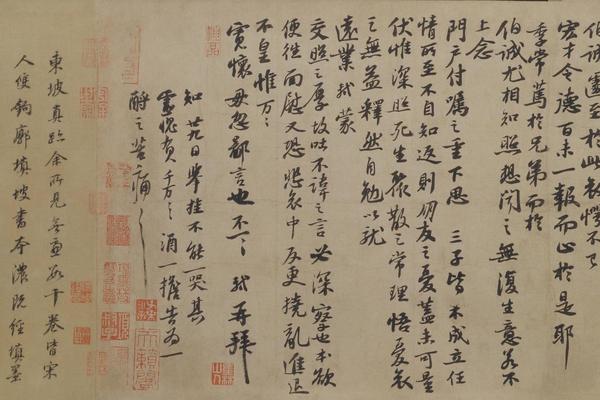 伯誠遽至於此哀愕不已
宏才令德百未一報而止於是耶
季常篤於兄弟而於
伯誠尤相知照想聞之無復生意若不
上念
門戶付囑之重下思三子皆不成立任
情所至不自知返則朋友之憂蓋未可量
伏惟深照死生聚散之常理悟憂哀
之無益釋然自勉以就
遠業軾蒙
交照之厚故吐不諱之言必深察也本欲
便往面慰又恐悲哀中反更撓亂進退
不皇惟万万
寬懷毋忽鄙言也不一一軾再拜
知廿九日舉挂不能一哭其
靈愧負千万千万酒一擔告為一
酹之苦痛苦痛
東坡真跡余所見無慮數十卷皆宋
人雙鉤廓填坡書本濃既經填墨